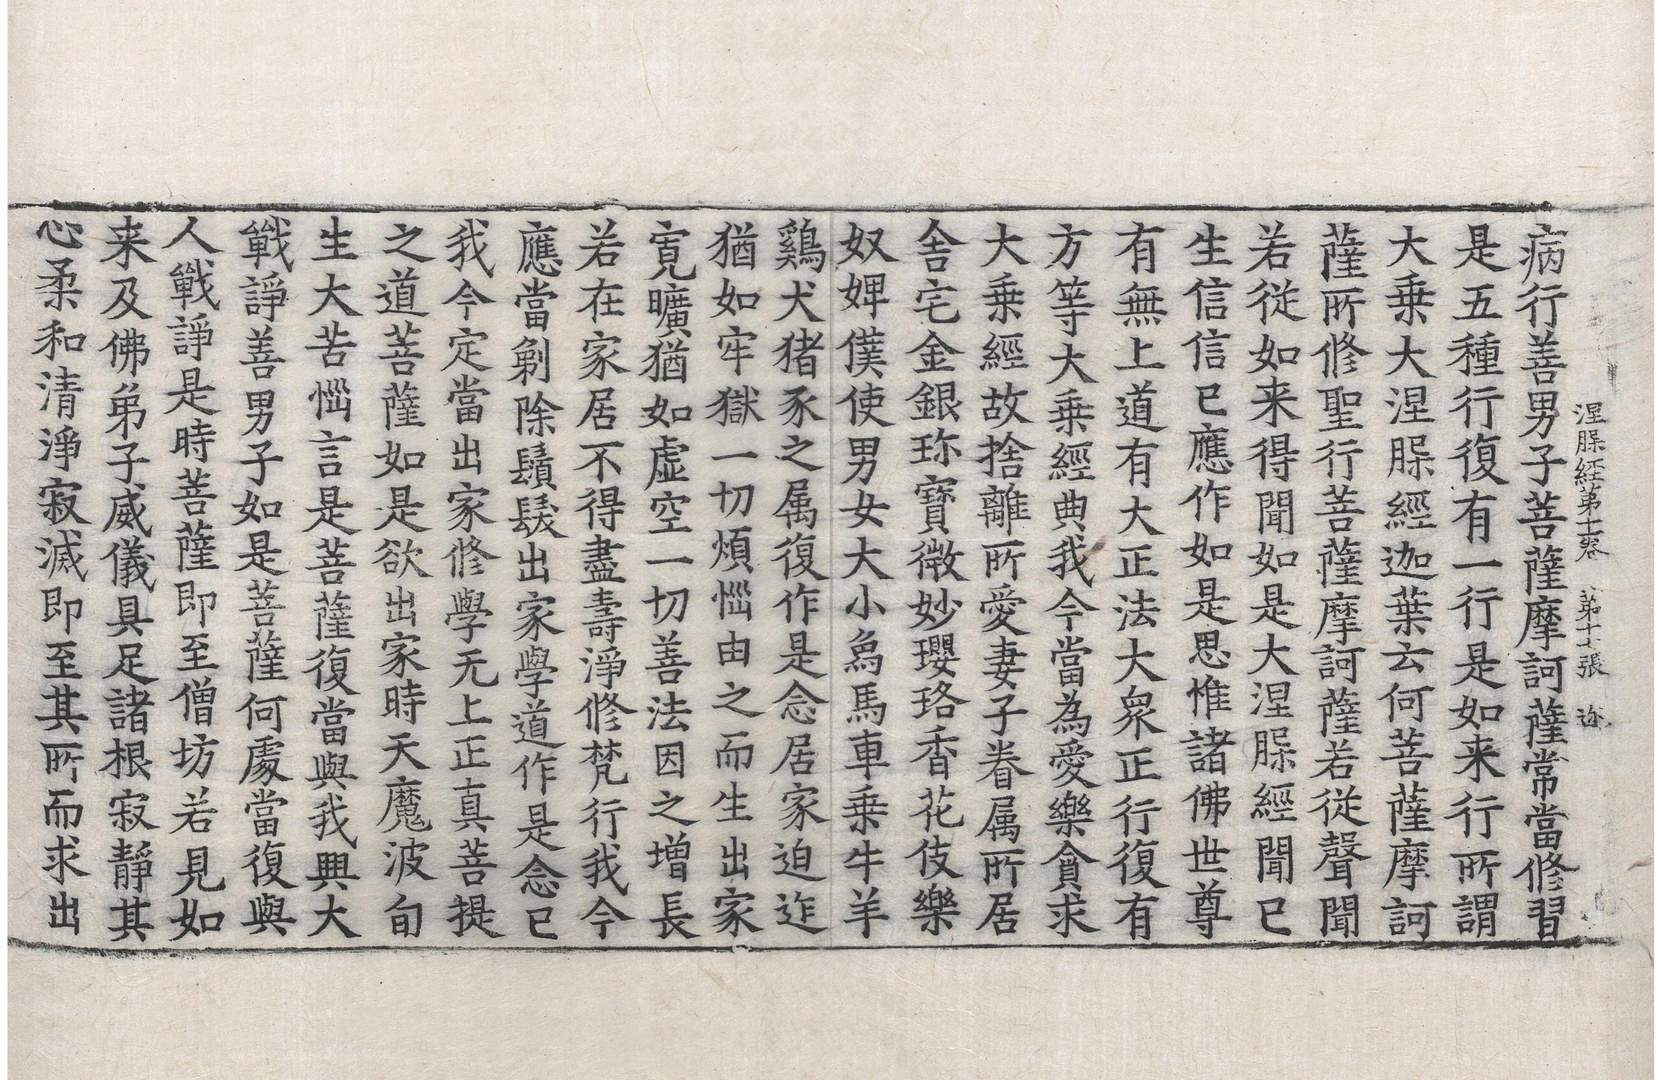 涅槃經第十一卷 第十七張 迩
病行善男子菩薩摩訶薩常當修習
是五種行復有一行是如来行所謂
大乗大涅槃經迦葉云何菩薩摩訶
薩所修聖行菩薩摩訶薩若從聲聞
若從如来得聞如是大涅槃經聞已
生信信已應作如是思惟諸佛世尊
有無上道有大正法大衆正行復有
方等大乗經典我今當為愛樂貪求
大乗經故捨離所愛妻子眷属所居
舍宅金銀珎寶微妙瓔珞香花伎樂
奴婢僕使男女大小烏馬車乗牛羊
鷄犬猪豕之属復作是念居家迫迮
猶如牢獄一切煩惱由之而生出家
寛曠猶如虚空一切善法因之增長
若在家居不得盡壽淨修梵行我今
應當剃除鬚髮出家學道作是念已
我今定當出家修學无上正真菩提
之道菩薩如是欲出家時天魔波旬
生大苦惱言是菩薩復當與我興大
戰諍善男子如是菩薩何處當復與
人戰諍是時菩薩即至僧坊若見如
来及佛弟子威儀具足諸根寂靜其
心柔和清淨寂滅即至其所而求出